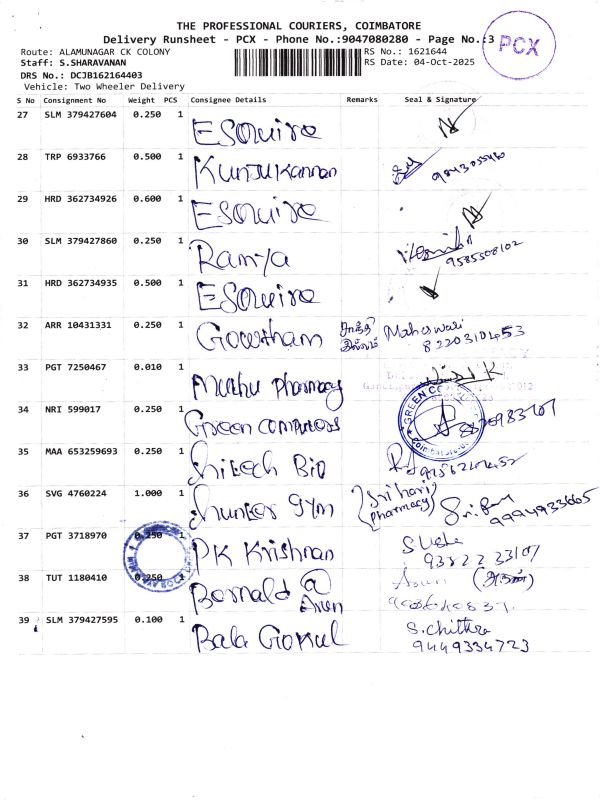 THE PROFESSIONAL COURIERS, COIMBATORE
Delivery Runsheet - PCX - Phone No.:9047080280 - Page No.:3
PCX
Route: ALAMUNAGAR CK COLONY RS No.: 1621644
Staff: S.SHARAVANAN RS Date: 04-Oct-2025
DRS No.: DCJB162164403
Vehicle: Two Wheeler Delivery
S No Consignment No Weight PCS Consignee Details Remarks Seal & Signature
27 SLM 379427604 0.250 1 ESquire
28 TRP 6933766 0.500 1 Kunjukannan
29 HRD 362734926 0.600 1 ESquire
30 SLM 379427860 0.250 1 Ramya 9585508102
31 HRD 362734935 0.500 1 ESquire
32 ARR 10431331 0.250 1 Gowtham சாந்தி இல்லம் Maheswari
8220310453
33 PGT 7250467 0.010 1 Muthu Pharmacy
34 NRI 599017 0.250 1 Green computers GREEN
35 MAA 653259693 0.250 1 Hitech Bio
36 SVG 4760224 1.000 1 Hunter Gym (Sri hari Pharmacy)
9994933665
37 PGT 3718970 0.250 1 PK Krishnan
93822 33107
38 TUT 1180410 0.250 1 Bernald @ Arun Arun (அருண்)
39 SLM 379427595 0.100 1 Bala Gokul S.Chithra
9449334723